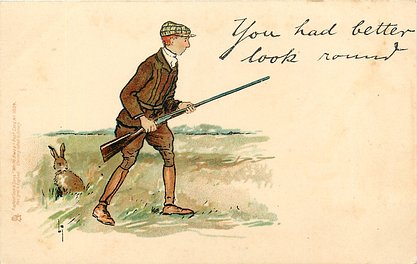 You had better
look round